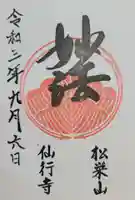 松栄山
妙法
仙行寺
令和二年九月六日